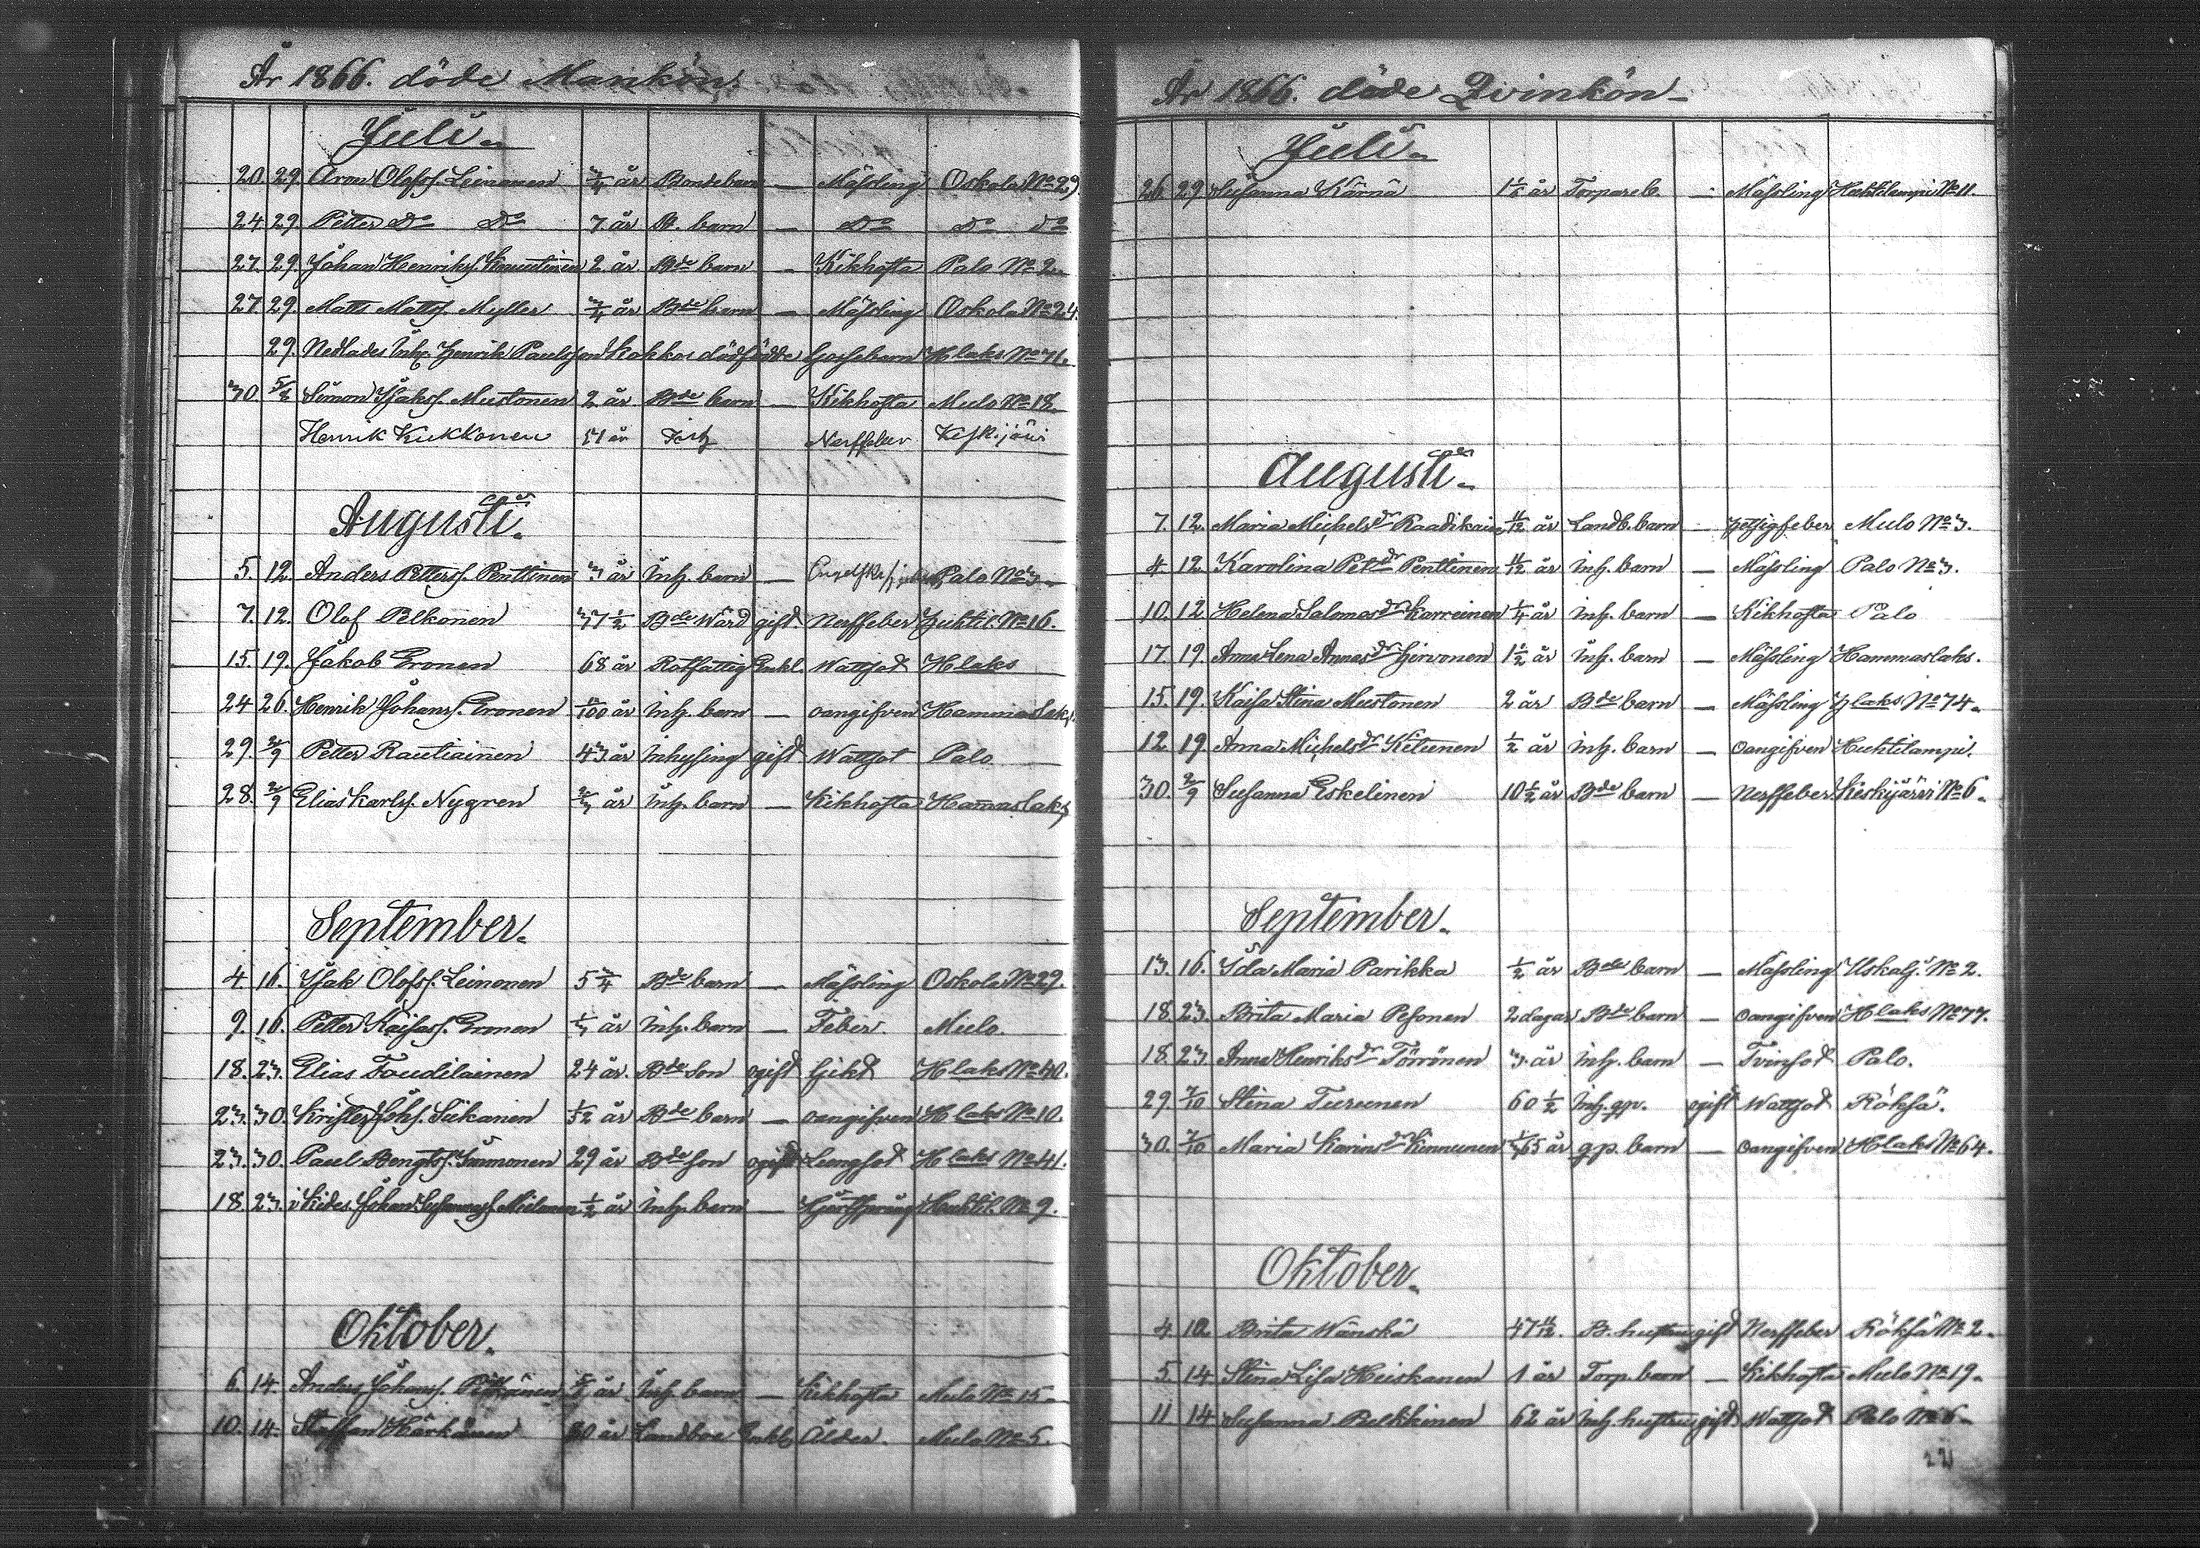 År 1866. döde Mankön.
Juli.
20. 29. Aron Olofss. Leinonen 3/4 år Bondebarn — Mässling Oskola No 29.
24 29. Petter Do Do 7 år B. barn — Do Do do
27. 29. Johan Henrikss. 2 år Bde barn — Kikhosta Palo No 2.
27 29. Matts Mattss. Myller 3/4 år Bde barn — Mässling Oskola No 24.
29. Nedlades Inh. Henrik Paulsson Kokkos dödfödde Gossebarn H.laks No 71.
30 5/8 Simon Isakss. Mustonen 2 år Bde barn — Kikhosta Mulo No 18.
Henrik Kukkonen 51 år Nerffeber Keskijärvi
Augusti.
5. 12. Anders Petterss. Penttinen 3 år Inh. barn — Palo No 3.
7. 12. Olof Pelkonen 37 1/2 Bde Wärd gift. Nerffeber Huhtil. No 16.
15. 19. Jakob Eronen 68 år Rotfattig Enkl. Wattsot H.laks
24 26. Henrik Johanss. Eronen år Inh. barn — oangifven Hammaslaks.
29. 2/9 Petter Rautiainen 43 år Inhysing gift Wattsot Palo
28. 2/9 Elias Karlss. Nygren 2/3 år Inh. barn — Kikhosta Hammaslaks
September.
4. 16. Isak Olofss. Leinonen 5 3/4 Bde barn — Mässling Oskola No 29.
9. 16. Petter Kaisass. Eronen 1/3 år Inh. barn — Feber. Mulo
18. 23. Elias Toudilainen 24 år. Bde son ogift Gikt H.laks No 40.
23. 30. Krister Johs. Siikanen år Bde barn — oangifven H.laks No 10.
23. 30. Paul Bengtss. 29 år Bde son ogift Lungsot H.laks No 41.
18. 23. i Kides. Johan Susannass. Mielonen 1/2 år Inh. barn — Huhtil. No 9.
Oktober.
6. 14. Anders Johanss. år Inh. barn — Kikhosta Mulo No 15.
10. 14. Staffan Härkönen 80 år Landboe Enkl. Ålder. Mulo No 5.
År 1866. döde Qvinkön
Juli.
26. 29. Susanna Kärnä år Torpareb. — Mässling Huhtilampi No 11.
Augusti.
7. 12. Maria Michelsdr Raadikain 11/12 år Landb. barn — Hettigfeber Mulo No 3.
4. 12. Karolina Petdr Penttinen 11/12 år Inh. barn — Mässling Palo No 3.
10. 12 Helena Salomosdr Karreinen 1/4 år Inh. barn — Kikhosta Palo
17. 19. Anna Lena Annasdr Hirvonen 1 1/2 år Inh. barn — Mässling Hammaslaks.
15. 19. Kaisa Stina Mustonen 2 år Bde barn — Mässling H.laks No 74.
12. 19. Anna Michelsdr Kitunen 1/2 år Inh. barn — oangifven Huhtilampi.
30. 2/9 Susanna Eskelinen 10 1/2 år Bde barn — Nerffeber Keskijärvi No 6.
September.
13. 16. Ida Maria Parikka 1/2 år Bde barn — Mässling Uskalj. No 2.
18. 23. Brita Maria Pesonen 2 dagar Bde barn — oangifven H.laks No 77.
18. 23. Anna Henriksdr Törrönen 3 år Inh. barn — Tvinsot Palo.
29. 7/10 Stina Turunen 60 1/2 Inh. qp. ogift Wattsot Röksä.
30. 7/10 Maria Karinsdr Kinnunen år qp. barn — oangifven H.laks No 64.
Oktober.
4. 10. Brita Wänskä 47 B. hustru gift Nerffeber Röksä No 2.
5. 14 Stina Lisa Heiskanen 1 år Torp. barn — Kikhosta Mulo No 19.
11 14 Susanna Pulkkinen 62 år Inh. hustru gift Wattsot Palo No 6.